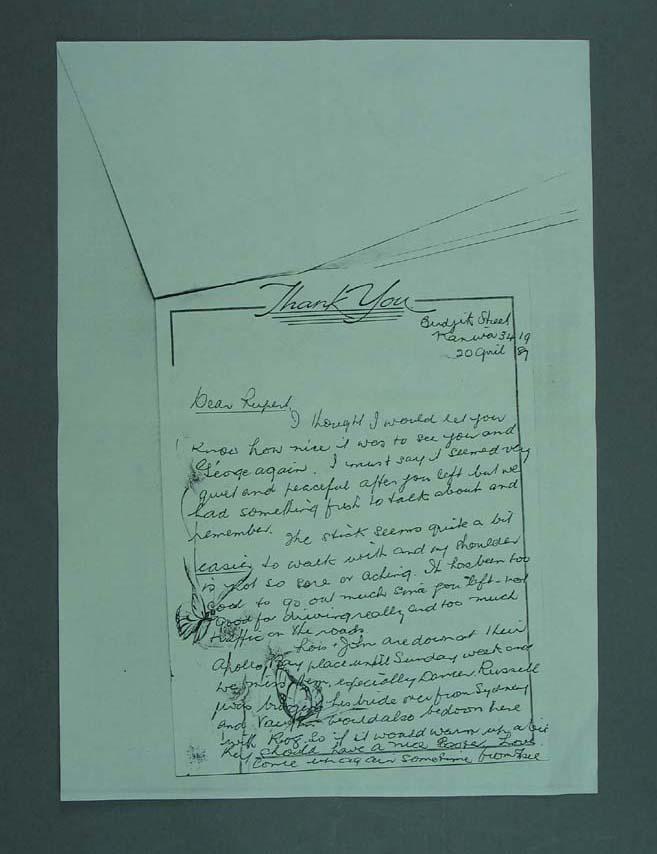 Thank You
Street
Kaniva 3419
20 April 89
Dear Rupert,
I thought I would let you
know how nice it was to see you and
George again. I must say it seemed very
quiet and peaceful after you left but we
had something fresh to talk about and
remember. The stick seems quite a bit
easier to walk with and my shoulder
is not so sore or aching. It has been too
to go out much since you left - not
good for driving really and too much
traffic on the roads.
Lois & John are down at their
Apollo Bay place until Sunday week and
we miss them, especially Darren. Russell
was bringing his bride over from Sydney
and would also be down here
with So if it would warm up a bit
they should have a nice Easter. Love
Come up again sometime from